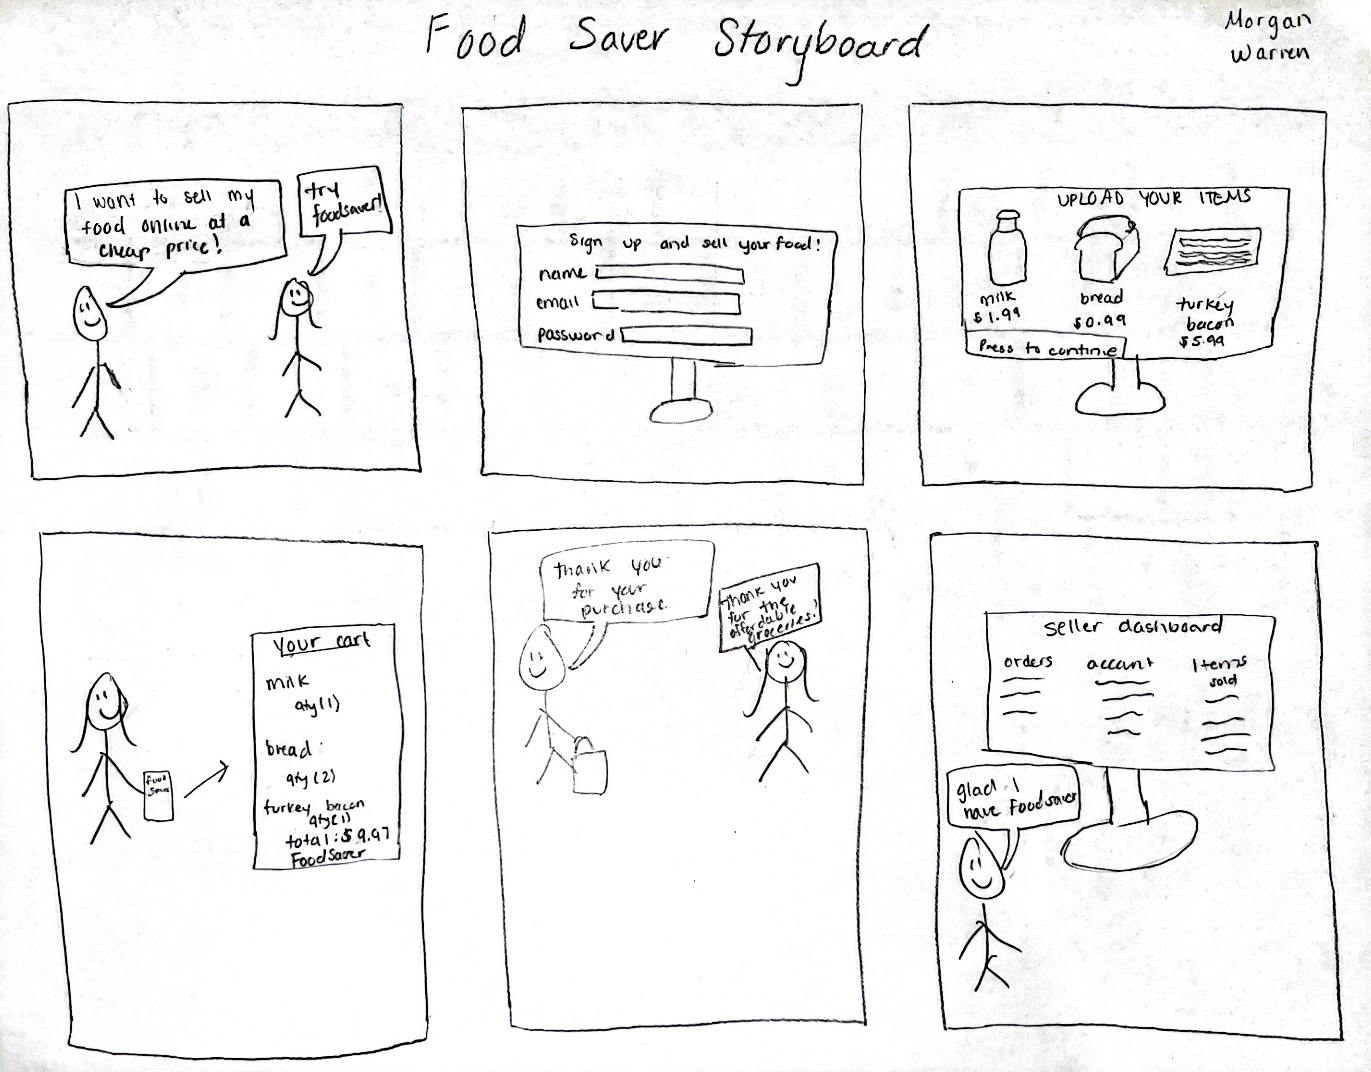 Food Saver Storyboard
Morgan
Warren
I want to sell my
food online at a
cheap price!
try
foodsaver!
Sign up and sell your food!
name
email
password
UPLOAD YOUR ITEMS
milk
$1.99
bread
$0.99
turkey
bacon
$5.99
Press to continue
Your cart
milk
qty(1)
bread:
qty(2)
turkey bacon
qty(1)
total:$9.97
FoodSaver
food
thank you
for your
purchase
Thank you
for the
affordable
groceries!
seller dashboard
orders
account
Items
sold
glad I
have Foodsaver